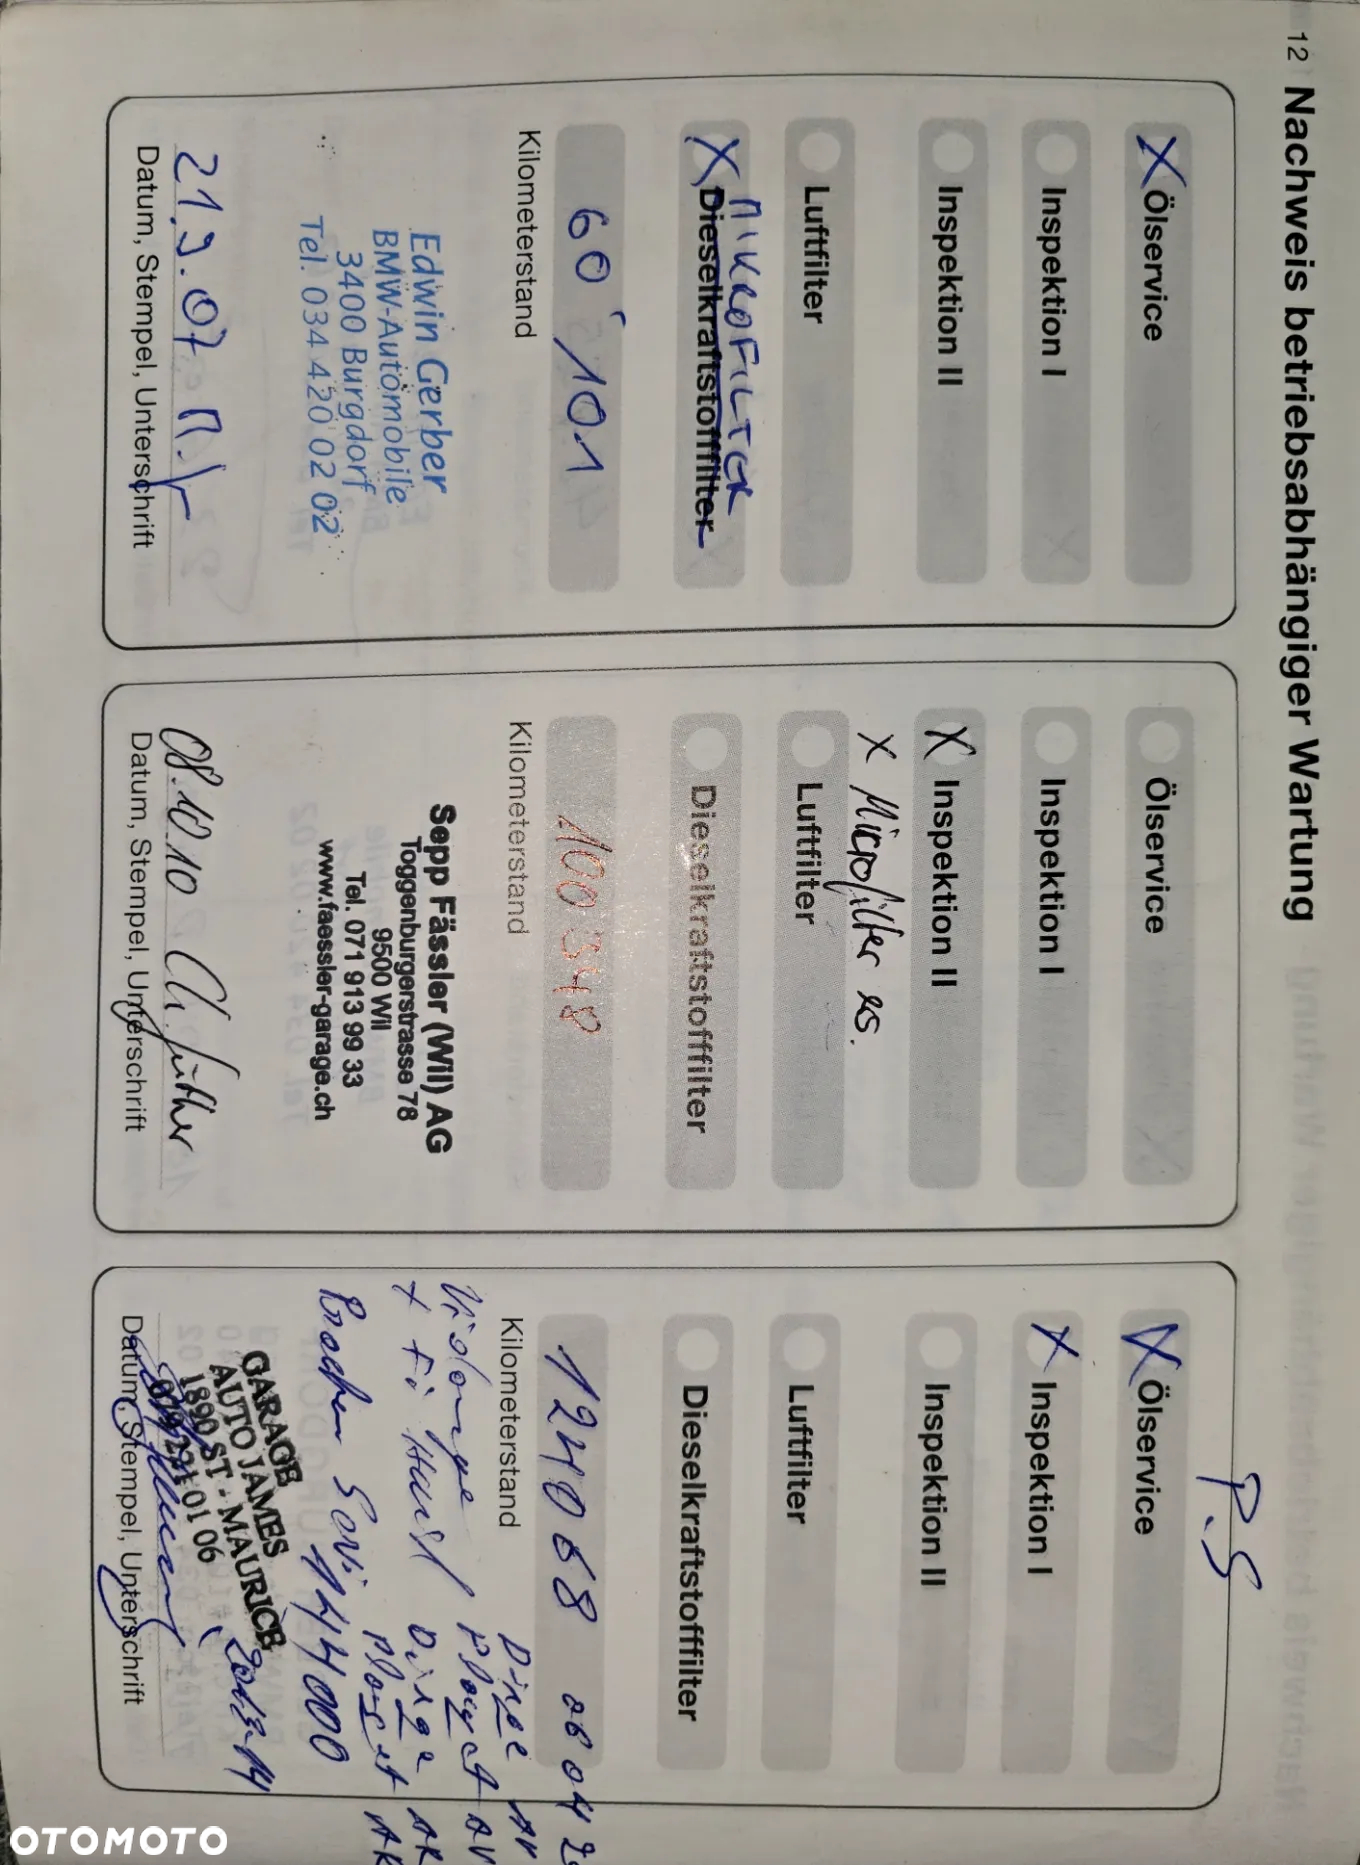 12 Nachweis betriebsabhängiger Wartung
X Ölservice
Inspektion I
Inspektion II
Luftfilter
MIKROFILTER
X Dieselkraftstofffilter
60'101
Kilometerstand
Edwin Gerber
BMW-Automobile
3400 Burgdorf
Tel. 034 420 02 02
21.9.07
Datum, Stempel, Unterschrift
Ölservice
Inspektion I
X Inspektion II
X Microfilter ers.
Luftfilter
Dieselkraftstofffilter
100 348
Kilometerstand
Sepp Fässler (Wil) AG
Toggenburgerstrasse 78
9500 Wil
Tel. 071 913 99 33
www.faessler-garage.ch
08.10.10
Datum, Stempel, Unterschrift
P.S
X Ölservice
X Inspektion I
Inspektion II
Luftfilter
Dieselkraftstofffilter
124068
Kilometerstand
Vidange
144000
GARAGE
AUTO JAMES
1890 ST-MAURICE
079 221 01 06
Datum, Stempel, Unterschrift
OTOMOTO